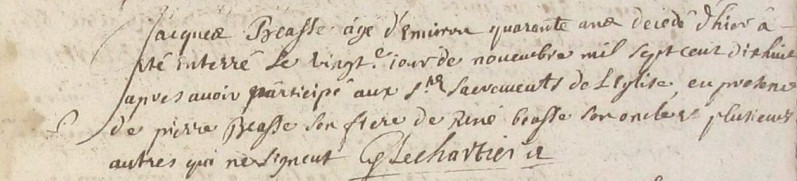 Jacques Beasse âgé d'Environ quarante ans decedé d'hier â
êté interré Le vingt.e iour de novembre mil sept cent dixhuit
apres avoir participé aux S.ts Sacrements de L'Eglise, en presence
de pierre Beasse son frere de René beasse son oncle & plusieurs
autres qui ne signent G Lechartier